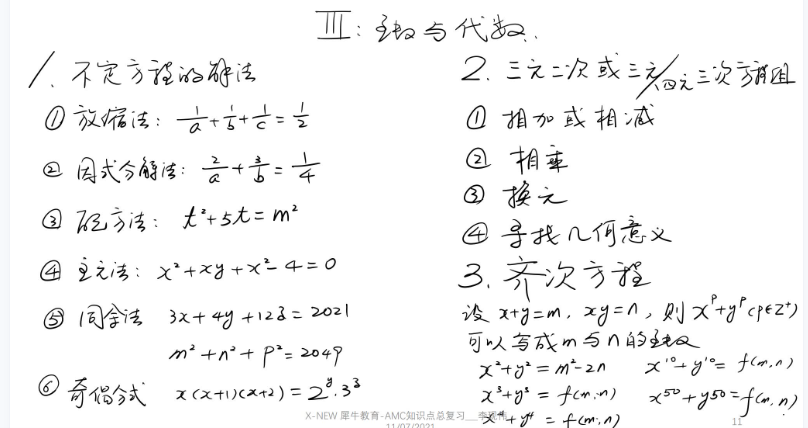 III: 与代数.
1. 不定方程的解法
① 放缩法: 1/a + 1/b + 1/c = 1/2
② 因式分解法: 2/a + 3/b = 1/4
③ 配方法: t²+5t=m²
④ 主元法: x²+xy+x²-4=0
⑤ 同余法 3x+4y+12z=2021
m²+n²+p²=2049
⑥ 奇偶分式 x(x+1)(x+2)=2⁸·3³
2. 三元二次或三元/四元三次方程组
① 相加或相减
② 相乘
③ 换元
④ 寻找几何意义
3. 齐次方程
设 x+y=m, xy=n, 则 xᵖ+yᵖ (p∈Z⁺)
可以写成m与n的
x²+y²=m²-2n x¹⁰+y¹⁰=f(m,n)
x³+y³=f(m,n) x⁵⁰+y⁵⁰=f(m,n)
x⁴+y⁴=f(m,n)
X-NEW 犀牛教育-AMC知识点总复习__李
11/07/2021
11